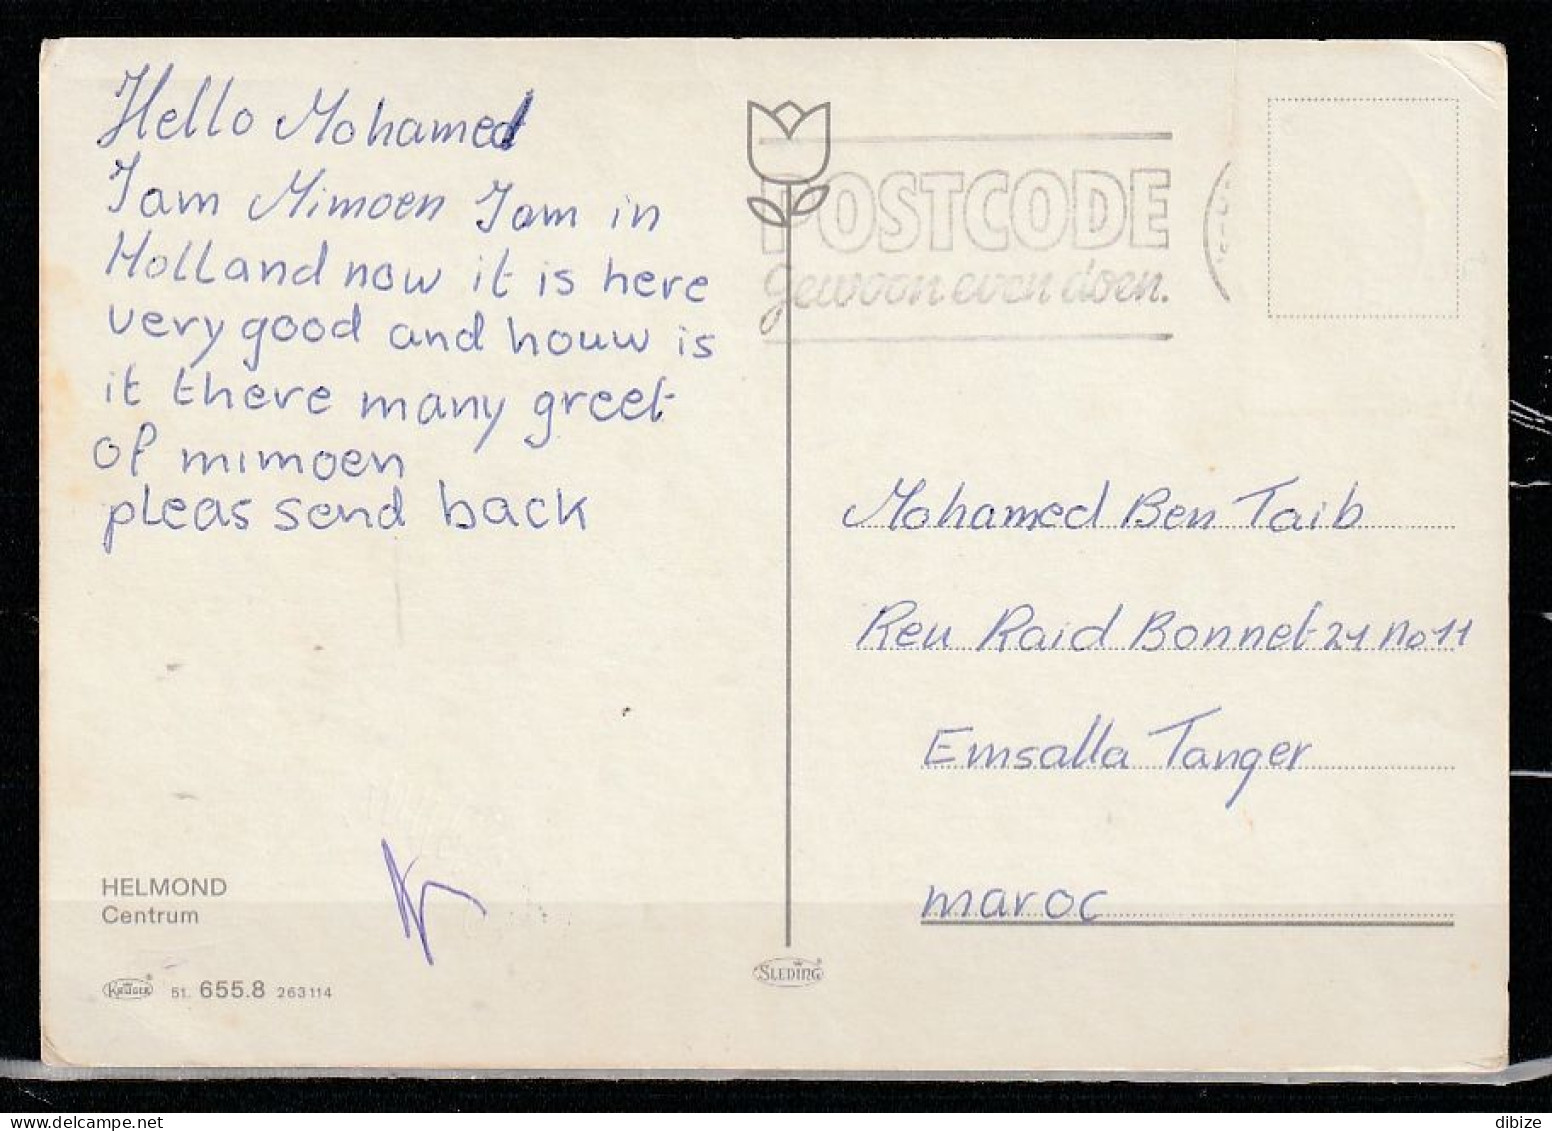 Hello Mohamed
Iam Mimoen Iam in
Holland now it is here
very good and houw is
it there many greet
of mimoen
pleas send back
POSTCODE
gewoon even doen.
Mohamed Ben Taib
Reu Raid Bonnet 21 no 11
Emsalla Tanger
maroc
HELMOND
Centrum
KRÜGER
51. 655.8 263114
SLEDING
dibize